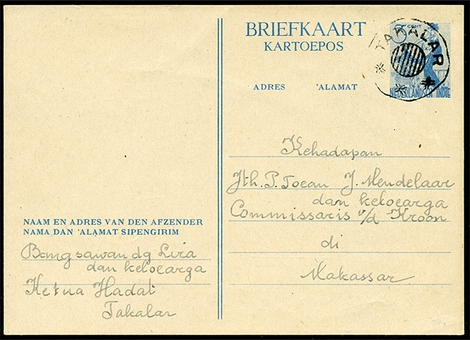 BRIEFKAART
KARTOEPOS
TAKALAR
NEDERLANDSCH INDIE
ADRES 'ALAMAT
Kehadapan
Jth. P. Toean J. Mendelaar
dan keloearga
Commissaris v/d Kroon
di
Makassar
NAAM EN ADRES VAN DEN AFZENDER
NAMA DAN 'ALAMAT SIPENGIRIM
Bongsawan dg Lira
dan keloearga
Ketua Hadat
Takalar